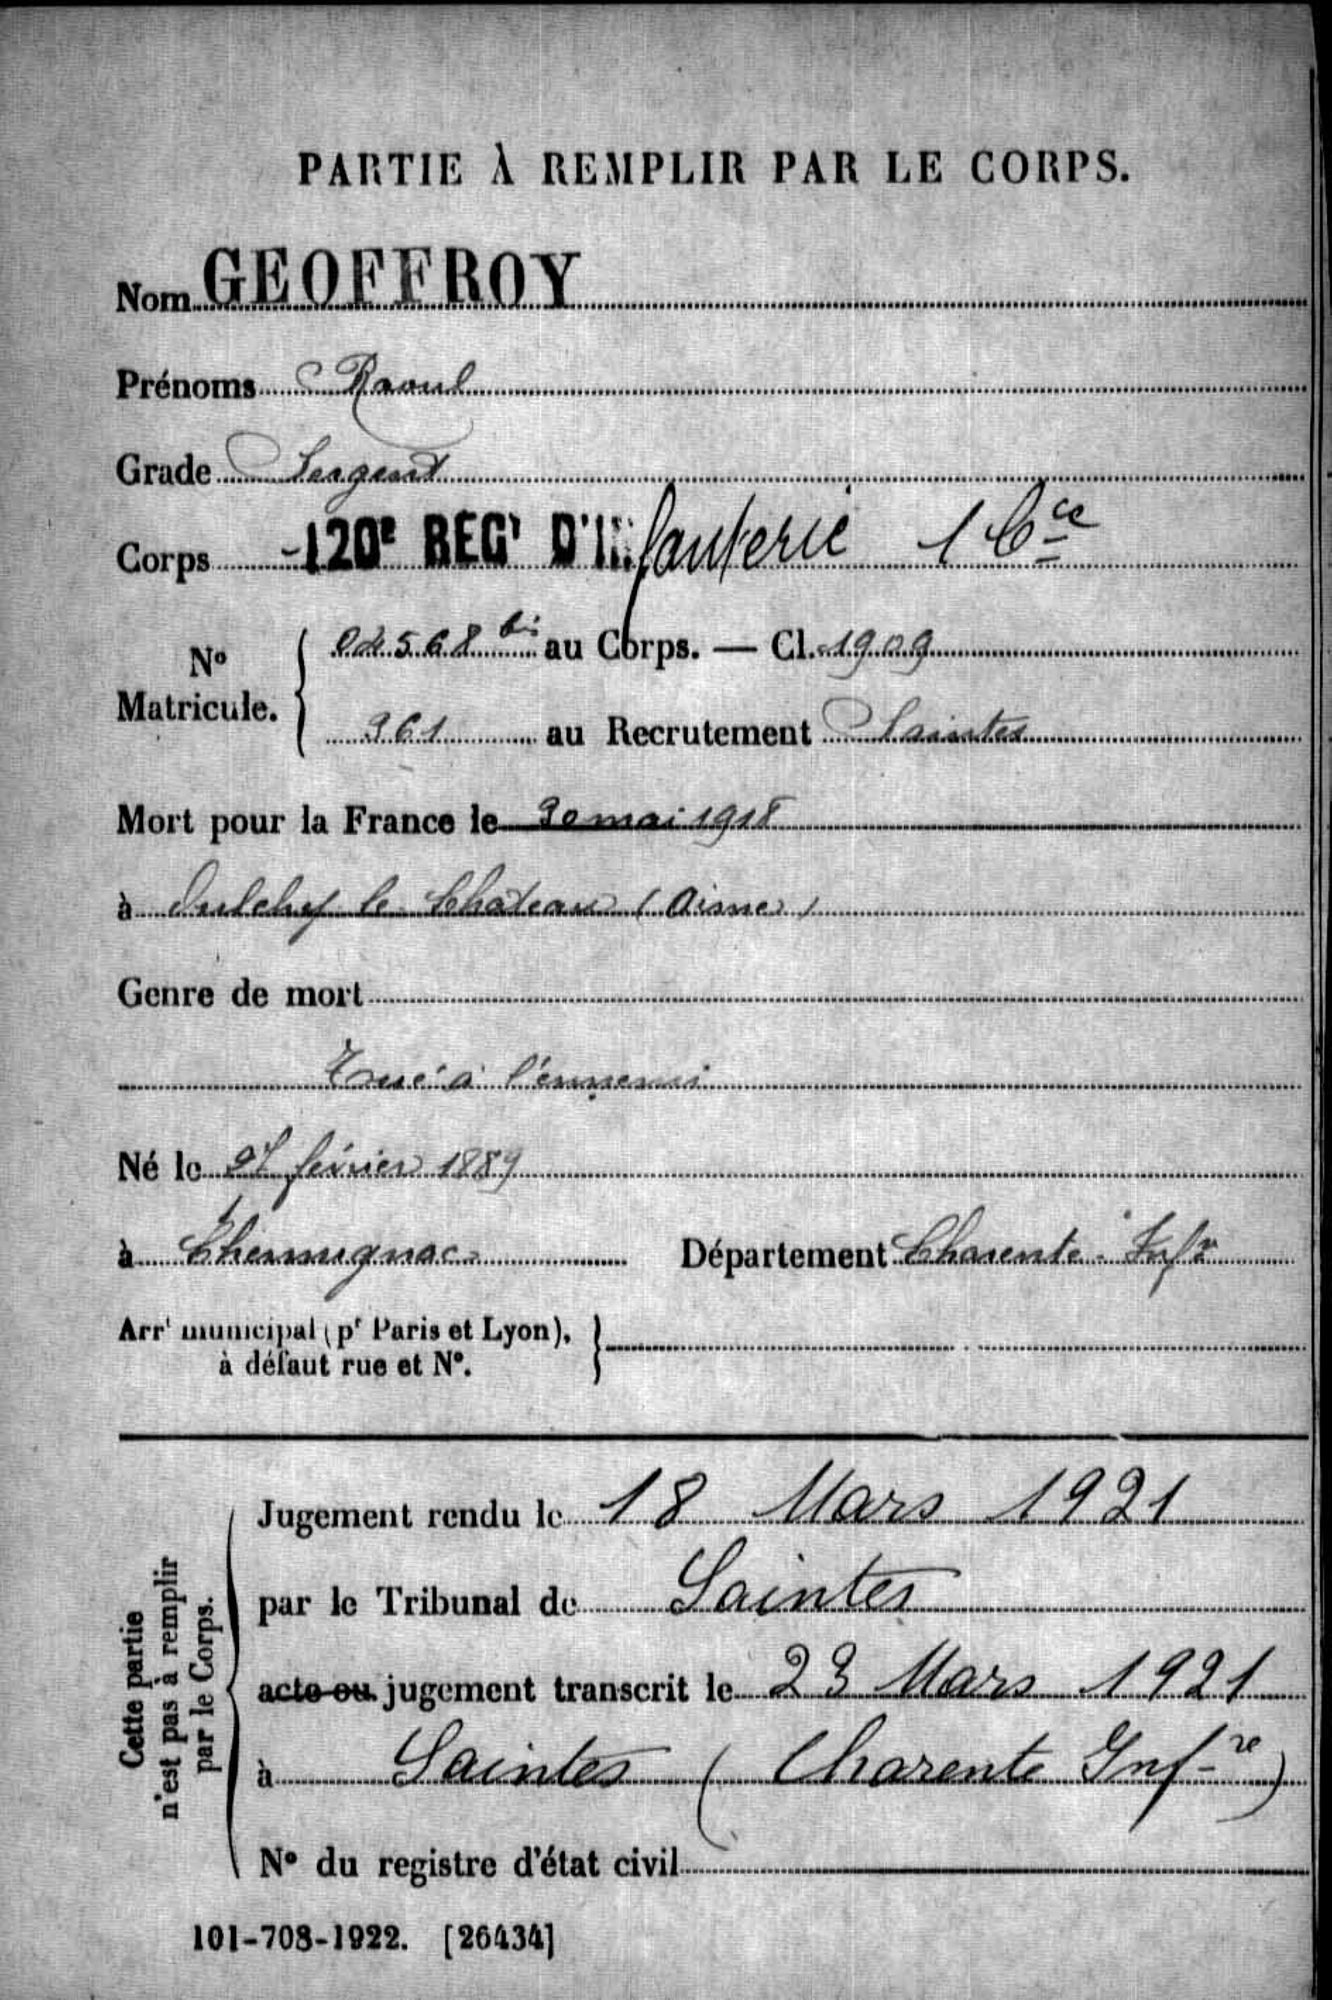 PARTIE À REMPLIR PAR LE CORPS.
Nom GEOFFROY
Prénoms Raoul
Grade Sergent
Corps -120e REGt D'Infanterie 1 Cie
No Matricule. { 04568 bis au Corps. — Cl. 1909
961 au Recrutement Saintes
Mort pour la France le 30 mai 1918
à Oulchy le Château (Aisne)
Genre de mort
Tué à l'ennemi
Né le 27 février 1889
à Chermignac Département Charente-Infre
Arrt municipal (pr Paris et Lyon),
à défaut rue et No.
Cette partie
n'est pas à remplir
par le Corps.
Jugement rendu le 18 Mars 1921
par le Tribunal de Saintes
acte ou jugement transcrit le 23 Mars 1921
à Saintes (Charente Inf-re)
No du registre d'état civil
101-708-1922. [26434]